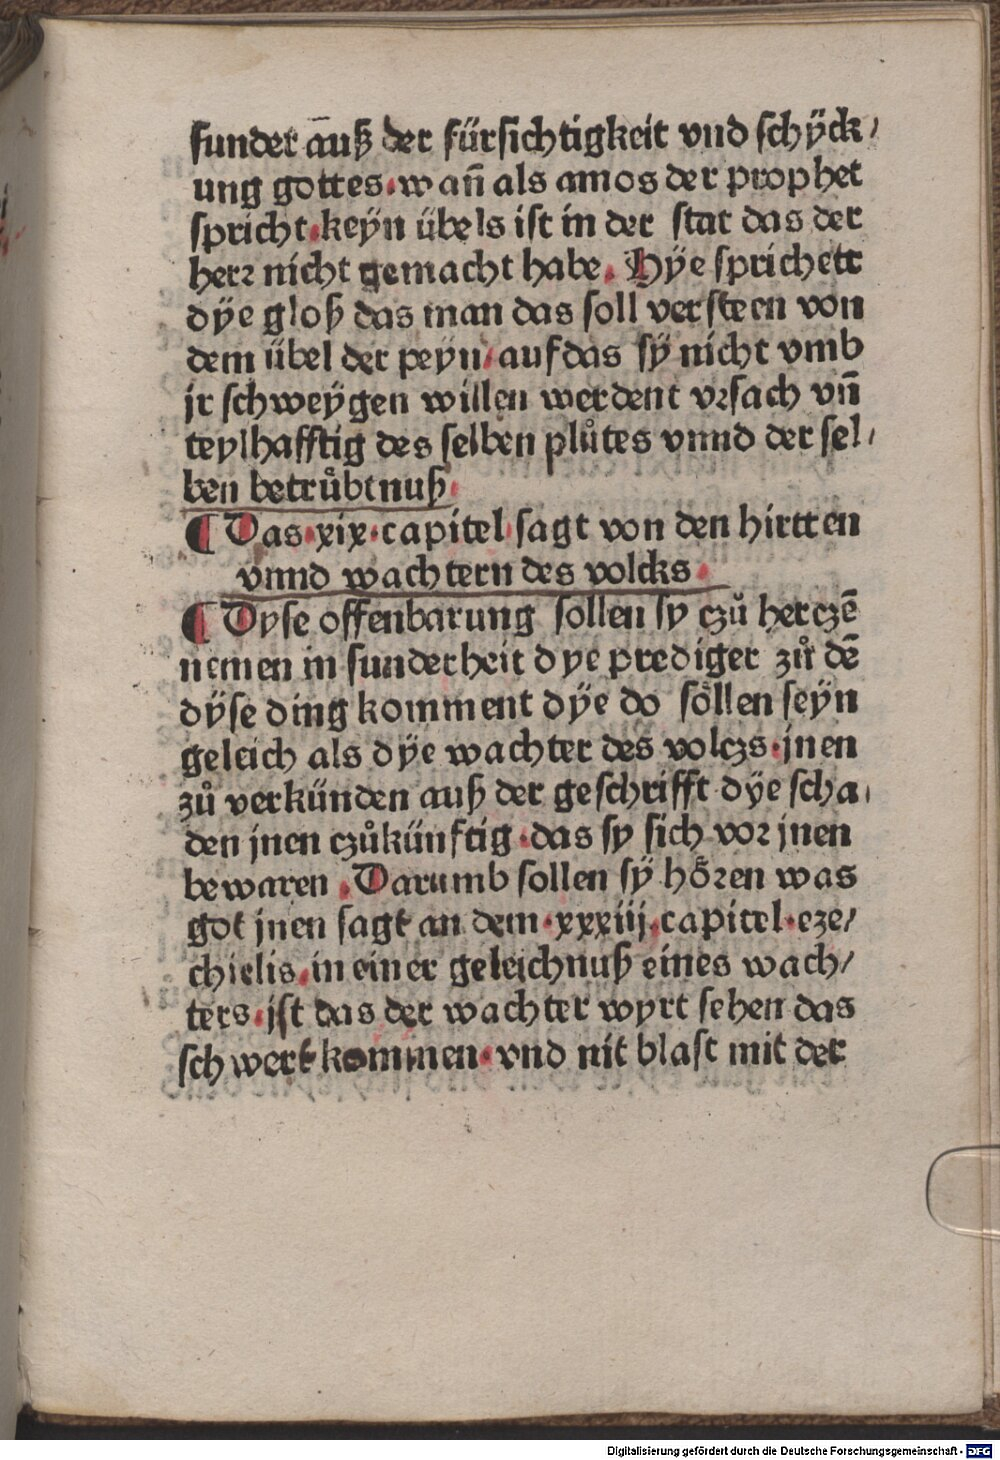 sunder auß der fürsichtigkeit vnd schÿck/
ung gottes·wañ als amos der prophet
spricht·keÿn übels ist in der stat das der
herr nicht gemacht habe. Hÿe sprichett
dÿe gloß das man das soll versteen von
dem übel der peÿn/auf das sÿ nicht vmb
jr schweÿgen willen werdent vrsach vñ
teylhafftig des selben plůtes vnnd der sel/
ben betrůbtnuß.
¶ Das·xix·capitel sagt von den hirtten
vnnd wachtern des volcks.
¶ Dyse offenbarung sollen sy czů herczē
nemen in sunderheit dye prediger zů dē
dÿse ding komment dÿe do söllen seÿn
geleich als dÿe wachter des volczs·jnen
zů verkünden auß der geschrifft dÿe scha/
den jnen czůkünftig·das sy sich vor jnen
bewaren .Darumb sollen sÿ hören was
got jnen sagt an dem·xxxiij.capitel·eze/
chielis.in einer geleichnuß eines wach/
ters·jst das der wachter wyrt sehen das
schwert kommen·vnd nit blast mit der
Digitalisierung gefördert durch die Deutsche Forschungsgemeinschaft - DFG